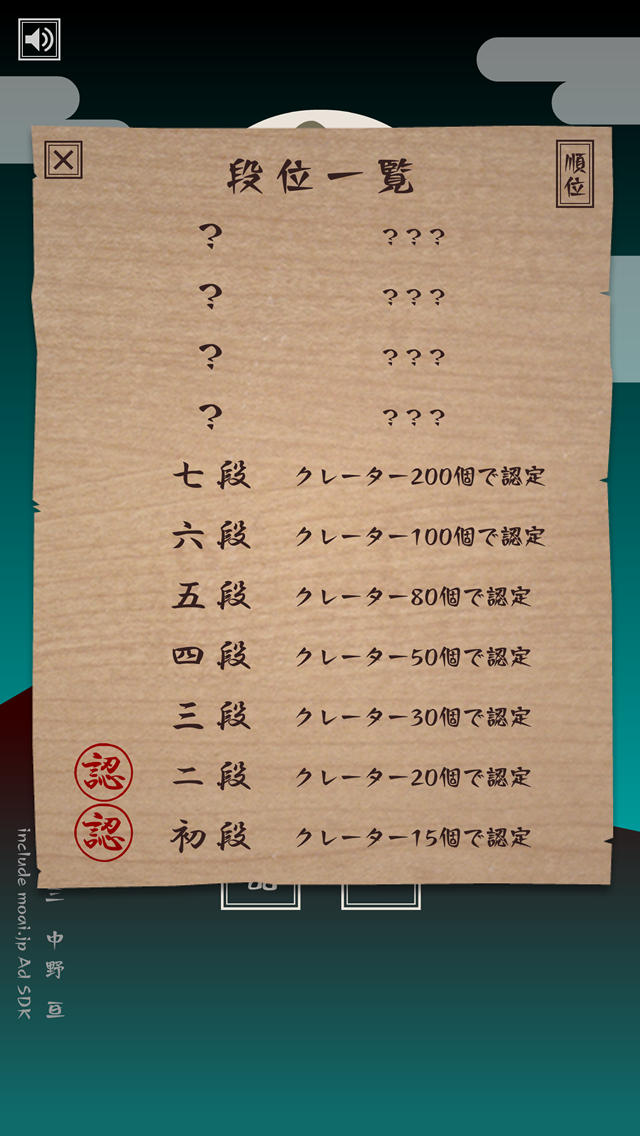 段位一覧
順位
? ???
? ???
? ???
? ???
七段 クレーター200個で認定
六段 クレーター100個で認定
五段 クレーター80個で認定
四段 クレーター50個で認定
三段 クレーター30個で認定
認 二段 クレーター20個で認定
認 初段 クレーター15個で認定
中野 亘
include moai.jp Ad SDK